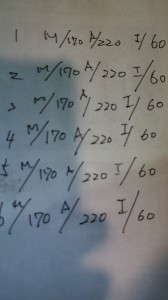 1 M/170 A/220 I/60
2 M/170 A/220 I/60
3 M/170 A/220 I/60
4 M/170 A/220 I/60
5 M/170 A/220 I/60
6 M/170 A/220 I/60